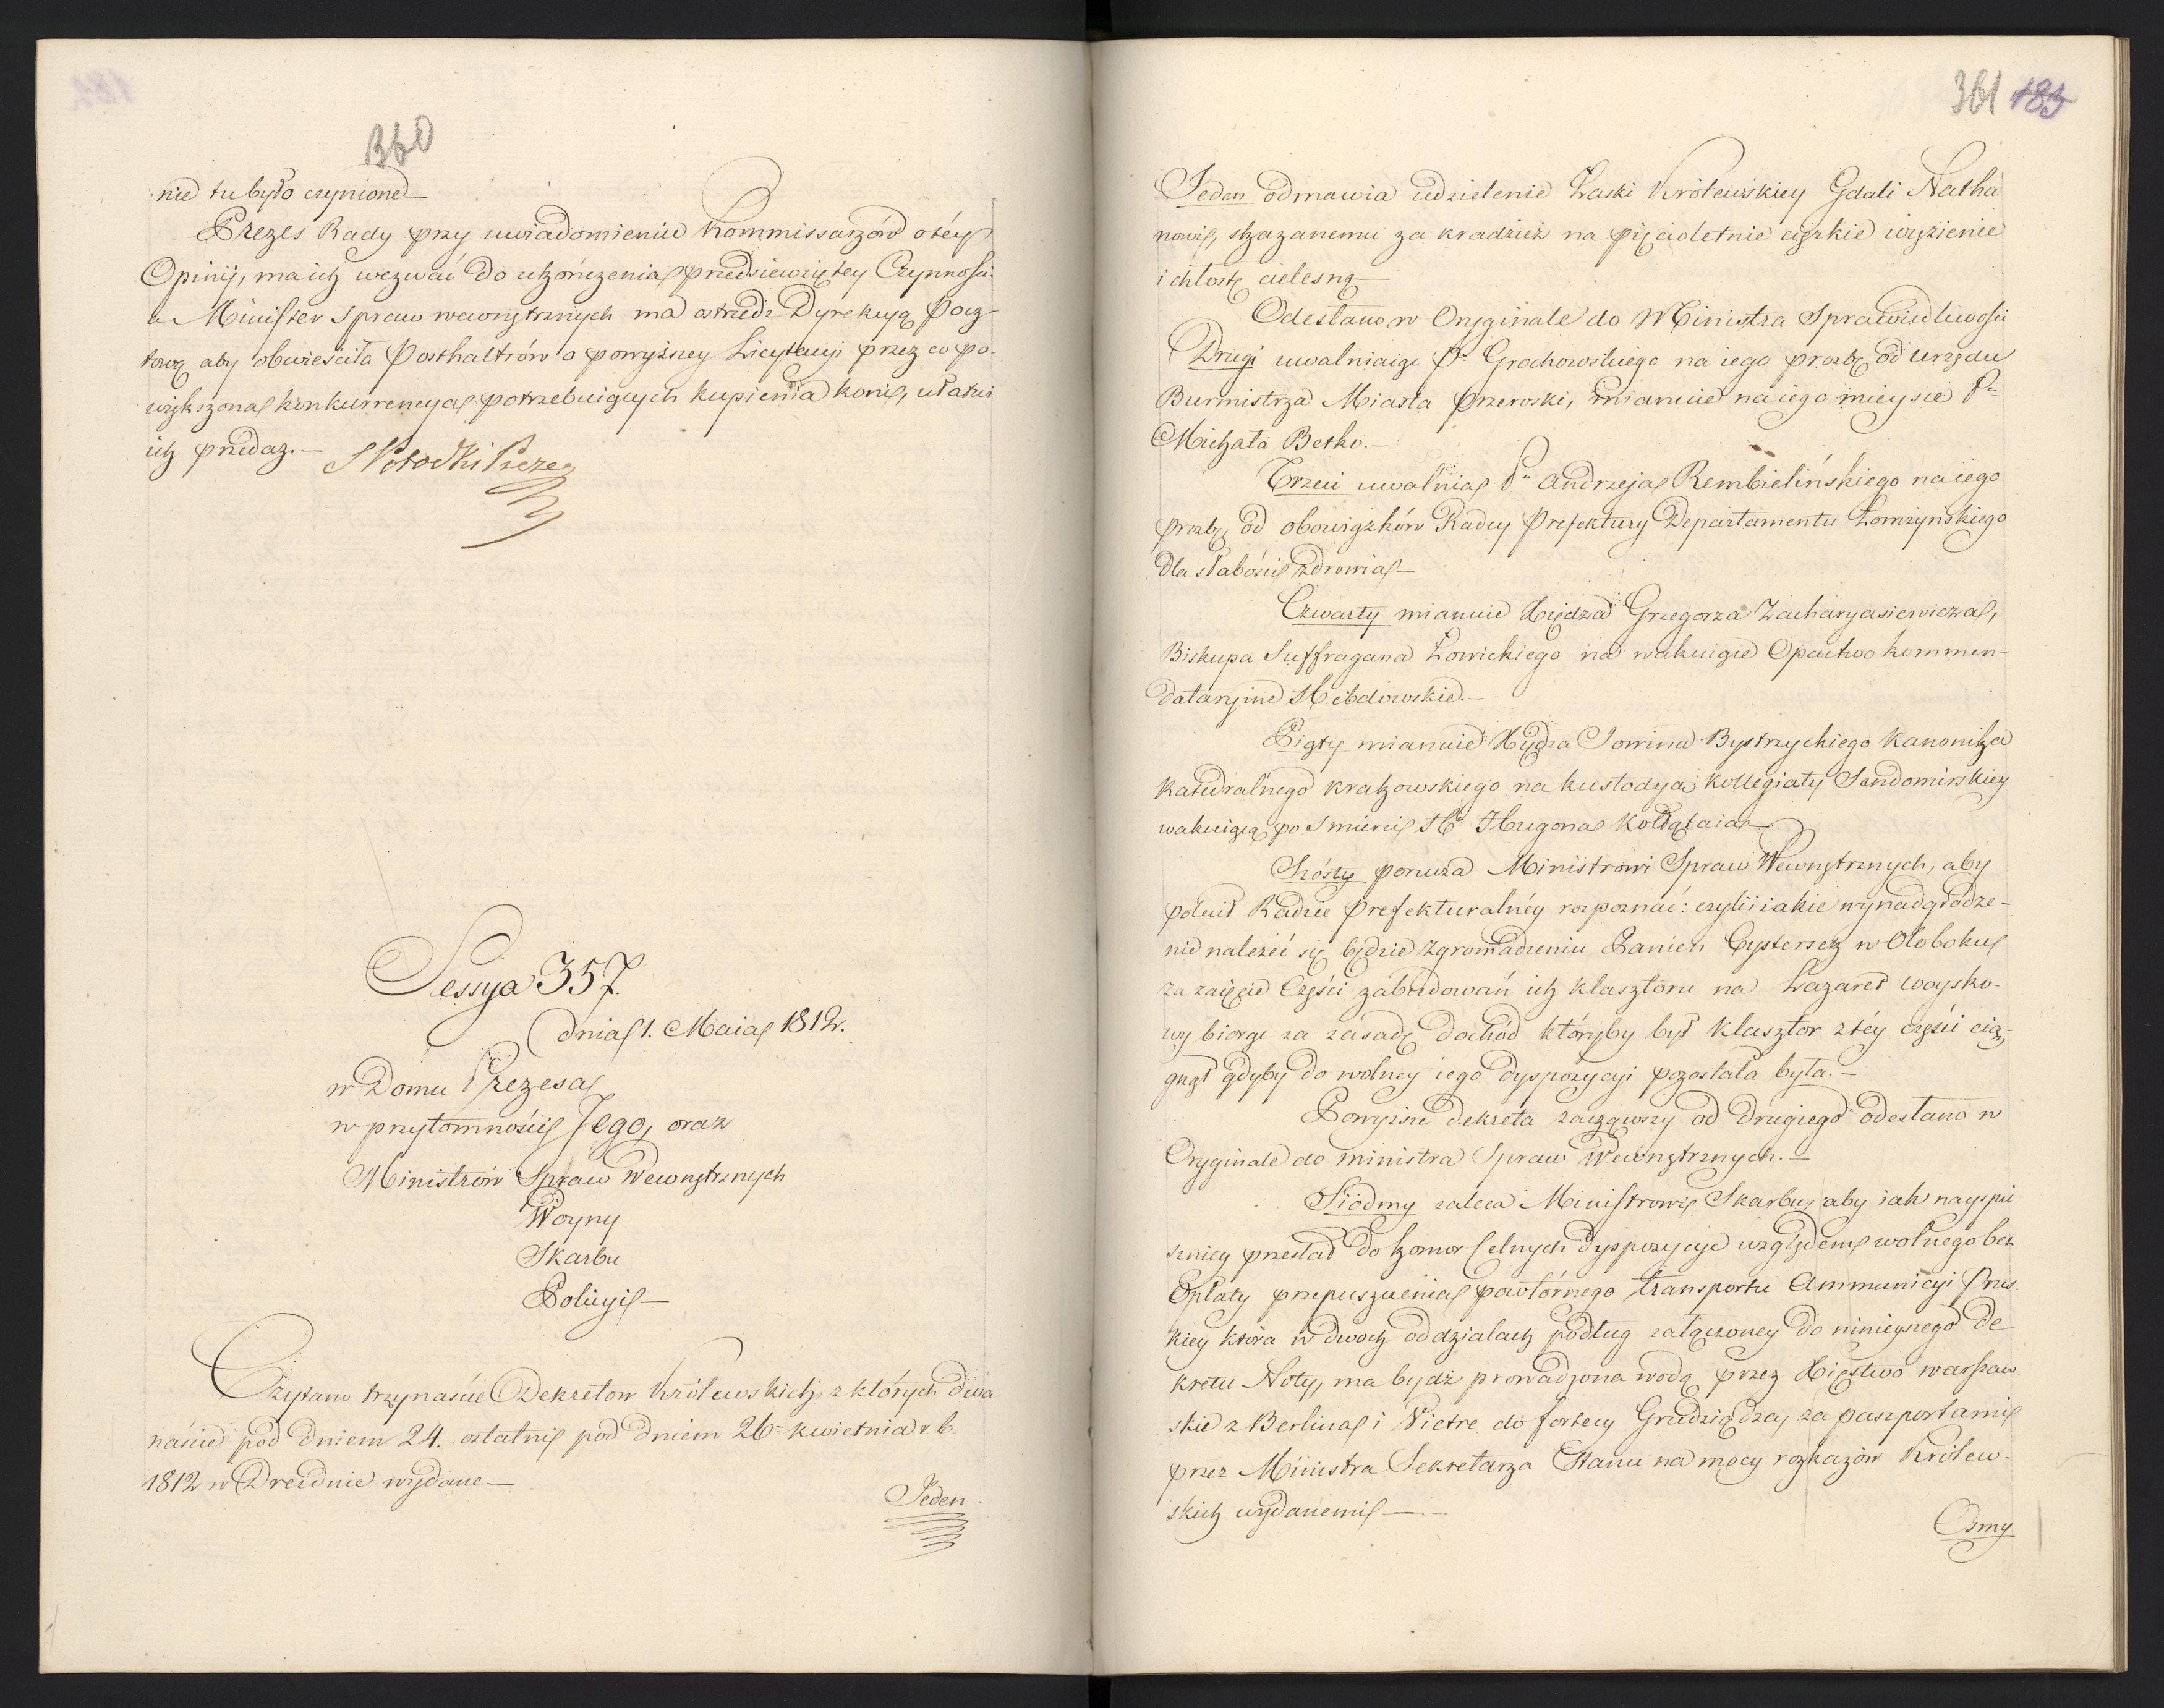 360
nie tu było czynione —
Prezes Rady przy uwiadomieniu Kommissarzów o téy
Opinij, ma ich wezwać do ukończenia przedsiewziętey Czynności
a Minister Spraw wewnętrznych ma ostrzedz Dyrekcyą Pocz-
tową aby obwieściła Posthalterów o powyższey Licytacyi przez co po-
większona konkurrencya potrzebuiących kupienia koni, ułatwi
ich przedaz. — S Potocki Prezes
Sessya 357.
dnia 1. Maia 1812r.
w Domu Prezesa
w przytomności Jego, oraz
Ministrów Spraw Wewnętrznych
Woyny
Skarbu
Policyi —
Czytano trzynaście Dekretow Królewskich, z których dwa
naście pod dniem 24. ostatni pod dniem 26 kwietnia r. b.
1812 w Dreźdnie wydane —
Jeden
361 183
Jeden odmawia udzielenie Łaski Królewskiey Gdali Natha
nowi, skazanemu za kradzież na pięcioletnie ciężkie więzienie
i chłostę cielesną —
Odesłano w Oryginale do Ministra Sprawiedliwości
Drugi uwalniaiąc P. Grochowskiego na iego prozbę od urzędu
Burmistrza Miasta Przerośli, mianuie na iego mieysce P.
Michała Betho. —
Trzeci uwalnia P. Andrzeja Rembielińskiego na iego
prozbę od obowiązków Radcy Prefektury Departamentu Łomżyńskiego
dla słabości zdrowia —
Czwarty mianuie Xiędza Grzegorza Zacharyasiewicza,
Biskupa Suffragana Łowickiego na wakuiące Opactwo kommen-
dataryjne Hebdowskie. —
Piąty mianuie Xiędza Jowina Bystrzyckiego Kanonika
Katedralnego krakowskiego na kustodyą Kollegiaty Sandomirskiey
wakuiącą po Smierci X. Hugona Kołłątaia —
Szósty porucza Ministrowi Spraw Wewnętrznych, aby
polecił Radzie Prefekturalnéy rozpoznać: czyli i iakie wynadgrodze-
nie należeć się będzie Zgromadzeniu Panien Cystersek w Ołoboku
za zaięcie Części zabudowań ich klasztoru na Lazaret woysko-
wy biorąc za zasadę dochód któryby był Klasztor z téy części cią-
gnął gdyby do wolney iego dyspozycyi pozostała była. —
Powyższe dekreta zacząwszy od drugiego odesłano w
Oryginale do ministra Spraw Wewnętrznych. —
Siódmy zaleca Ministrowi Skarbu, aby iak nayspie
szniey przesłał do komor Celnych dyspozycye względem wolnego bez
Opłaty przepuszczenia powtórnego transportu Ammunicyi Prus-
kiey która w dwoch oddziałach podług załączoney do ninieyszego De
kretu Noty, ma bydź prowadzona wodą przez Xięstwo Warszaw-
skie z Berlina i Pietre do fortecy Grudziądza, za paszportami
przez Ministra Sekretarza Stanu na mocy rozkazów Królew-
skich wydanemi —
Osmy